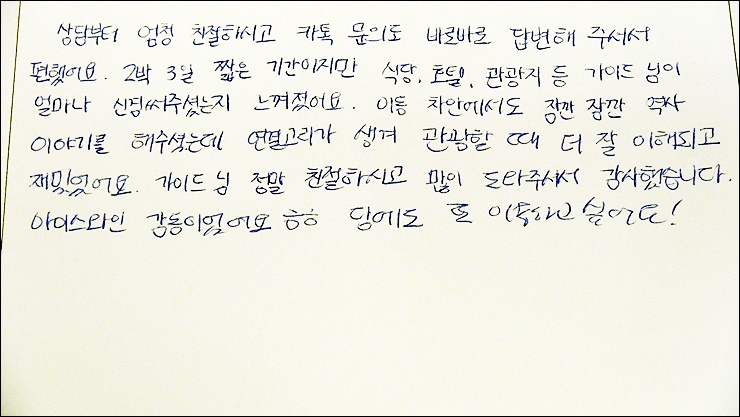 상담부터 엄청 친절하시고 카톡 문의도 바로바로 답변해 주셔서
편했어요. 2박 3일 짧은 기간이지만 식당, 호텔, 관광지 등 가이드 님이
얼마나 신경써주셨는지 느껴졌어요. 이동 차안에서도 잠깐 잠깐 역사
이야기를 해주셨는데 연결고리가 생겨 관광할 때 더 잘 이해되고
재밌었어요. 가이드 님 정말 친절하시고 많이 도와주셔서 감사했습니다.
아이스와인 감동이었어요 ㅎㅎ 담에도 또 이용하고 싶어요!